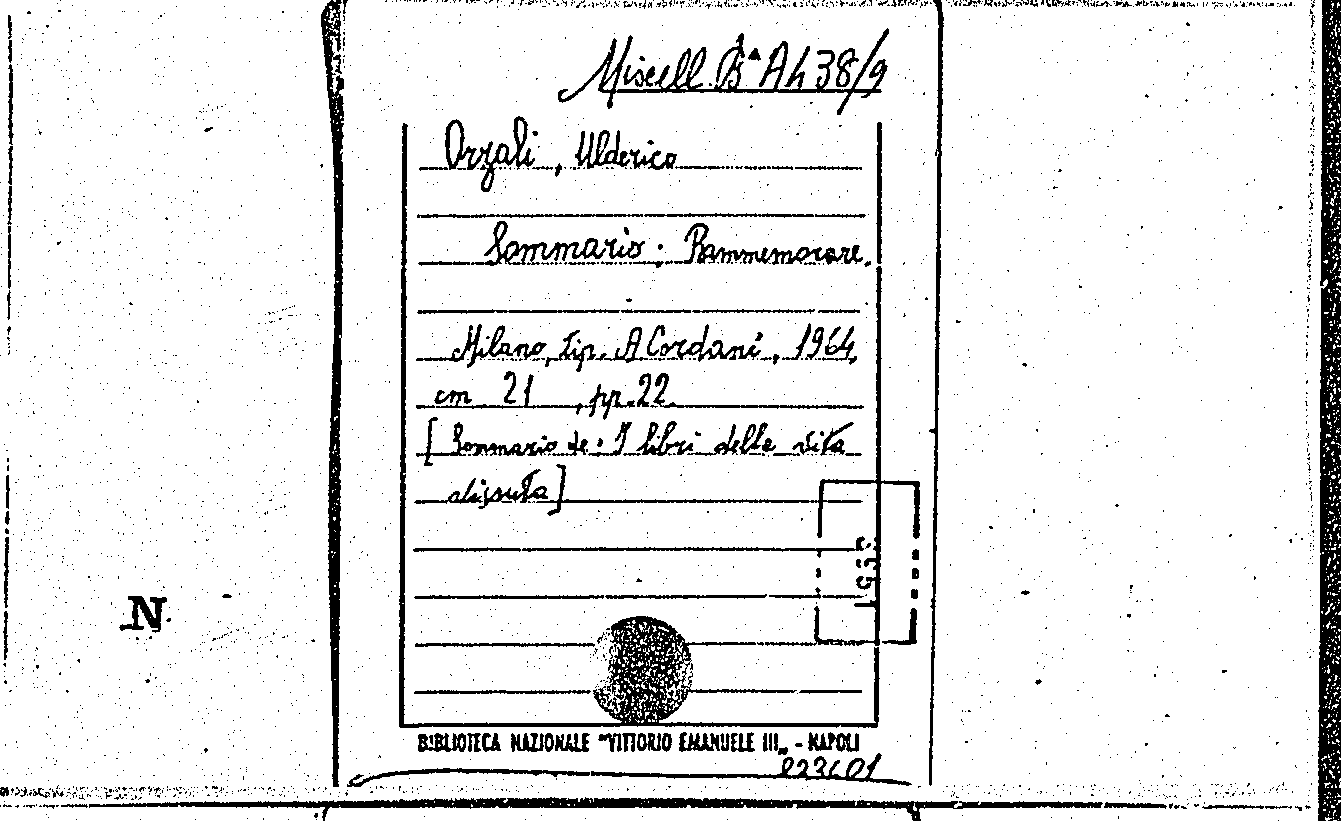 Miscell. Bª A438/9
Orzali, Ulderico
Sommario: Rammemorare.
Milano, tip. A Cordani, 1964,
cm 21, pp. 22.
[Sommario de: I libri della vita
vissuta]
N
BIBLIOTECA NAZIONALE "VITTORIO EMANUELE III" - NAPOLI